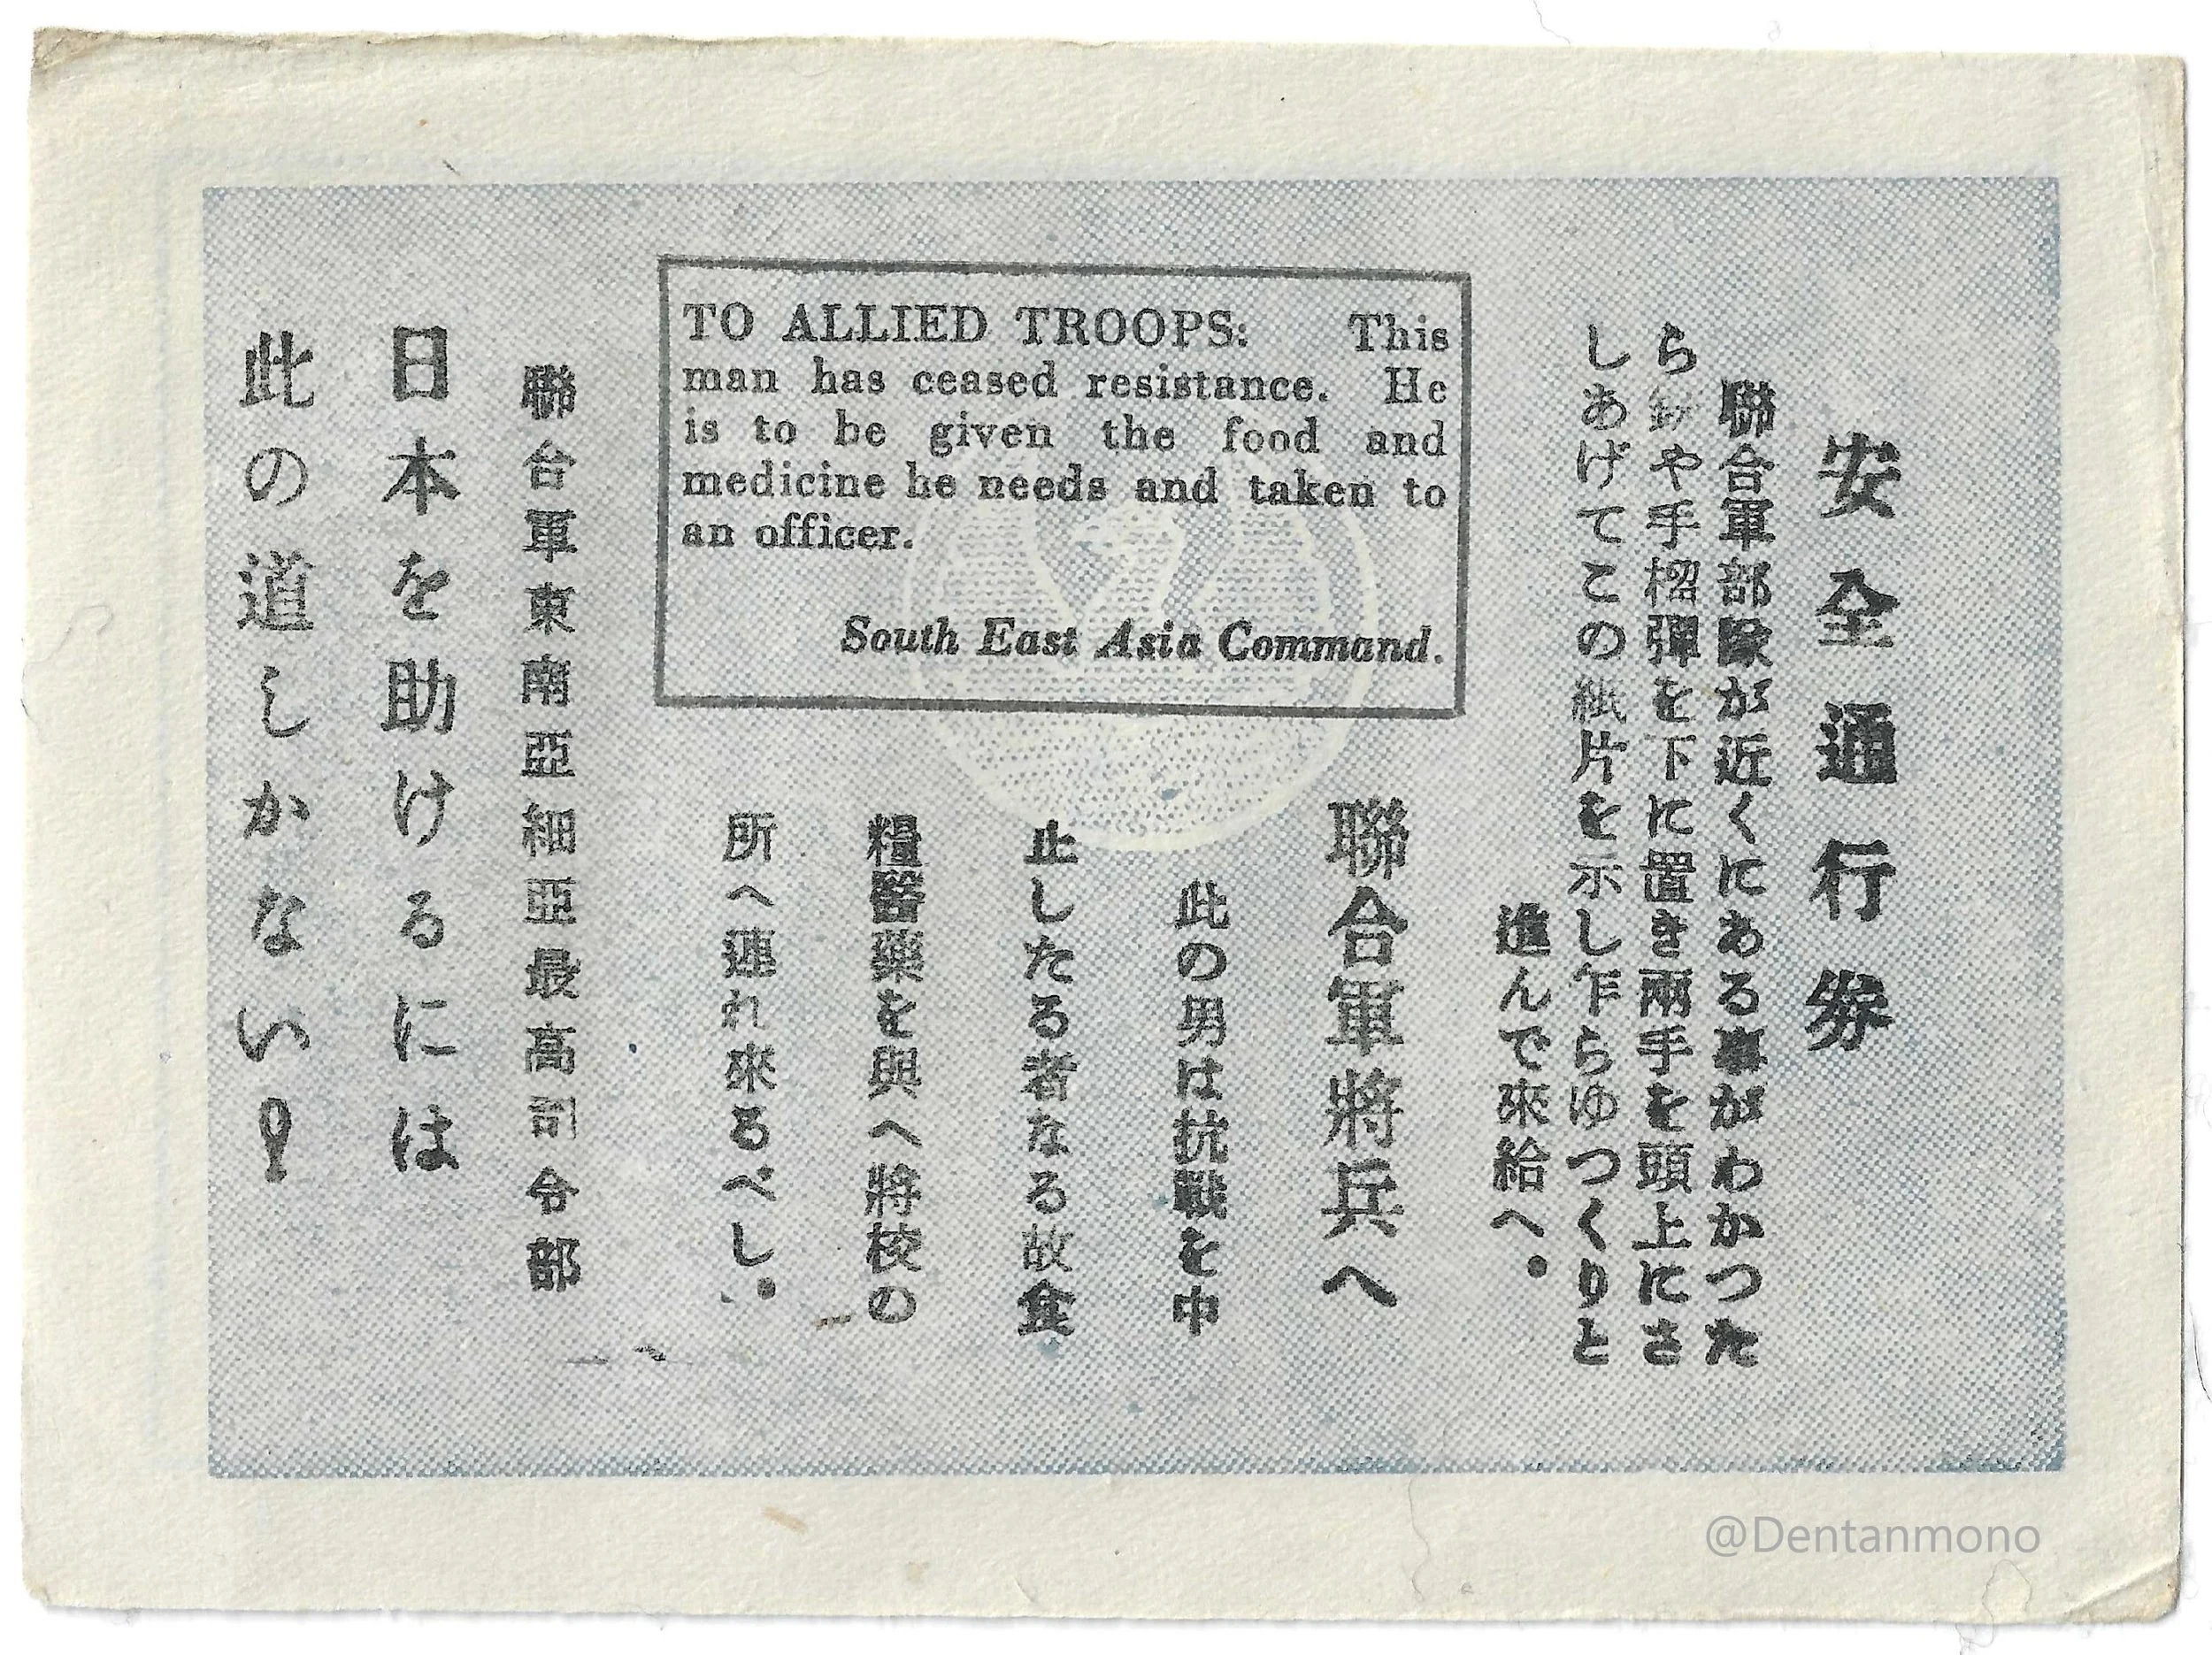 安全通行券
聯合軍部隊が近くにある事がわかつた
ら銃や手榴彈を下に置き兩手を頭上にさ
しあげてこの紙片を示し乍らゆつくりと
進んで來給へ。
TO ALLIED TROOPS: This
man has ceased resistance. He
is to be given the food and
medicine he needs and taken to
an officer.
South East Asia Command.
聯合軍將兵へ
此の男は抗戰を中
止したる者なる故食
糧醫藥を與へ將校の
所へ連れ來るべし。
聯合軍東南亞細亞最高司令部
日本を助けるには
此の道しかない!
@Dentanmono